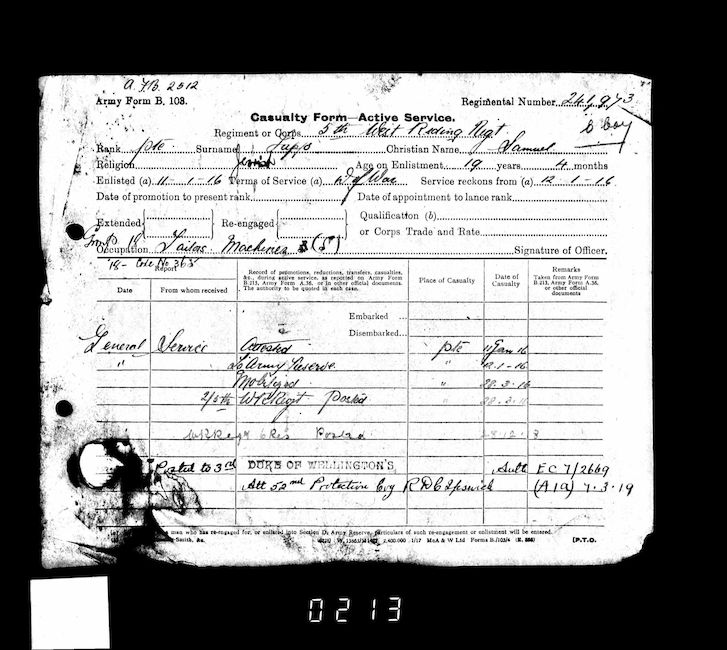 A.F.B. 2512
Army Form B. 103.
Regimental Number 241973
Casualty Form—Active Service.
Regiment or Corps 5th West Riding Regt
Rank Pte Surname Christian Name Samuel
Religion Jewish Age on Enlistment 19 years 4 months
Enlisted (a) 11-1-16 Terms of Service (a) D of War Service reckons from (a) 12.1-16
Date of promotion to present rank Date of appointment to lance rank
Extended Re-engaged Qualification (b)
or Corps Trade and Rate
Occupation Tailors Machiner (5) Signature of Officer.
18- Code No 365
Report
Date From whom received
Record of promotions, reductions, transfers, casualties, &c., during active service, as reported on Army Form B.213, Army Form A.36, or in other official documents. The authority to be quoted in each case.
Place of Casualty
Date of Casualty
Remarks
Taken from Army Form B.213, Army Form A.36, or other official documents
Embarked
Disembarked
General Service Attested Pte 11 Jan 16
" To Army Reserve " 12-1-16
Mobilized " 28.3.16
2/5th W R Regt Posted 28.3
Res Posted
Posted to 3rd DUKE OF WELLINGTON'S Auth EC 7/2669
Att 52nd Protective Coy R D C Ipswich (A1a) 7.3.19
man who has re-engaged for, or enlisted into Section D, Army Reserve, particulars of such re-engagement or enlistment will be entered.
Smith, &c. 2,400,000 1/17 McA & W Ltd Forms B.103/4 [P.T.O.
0213